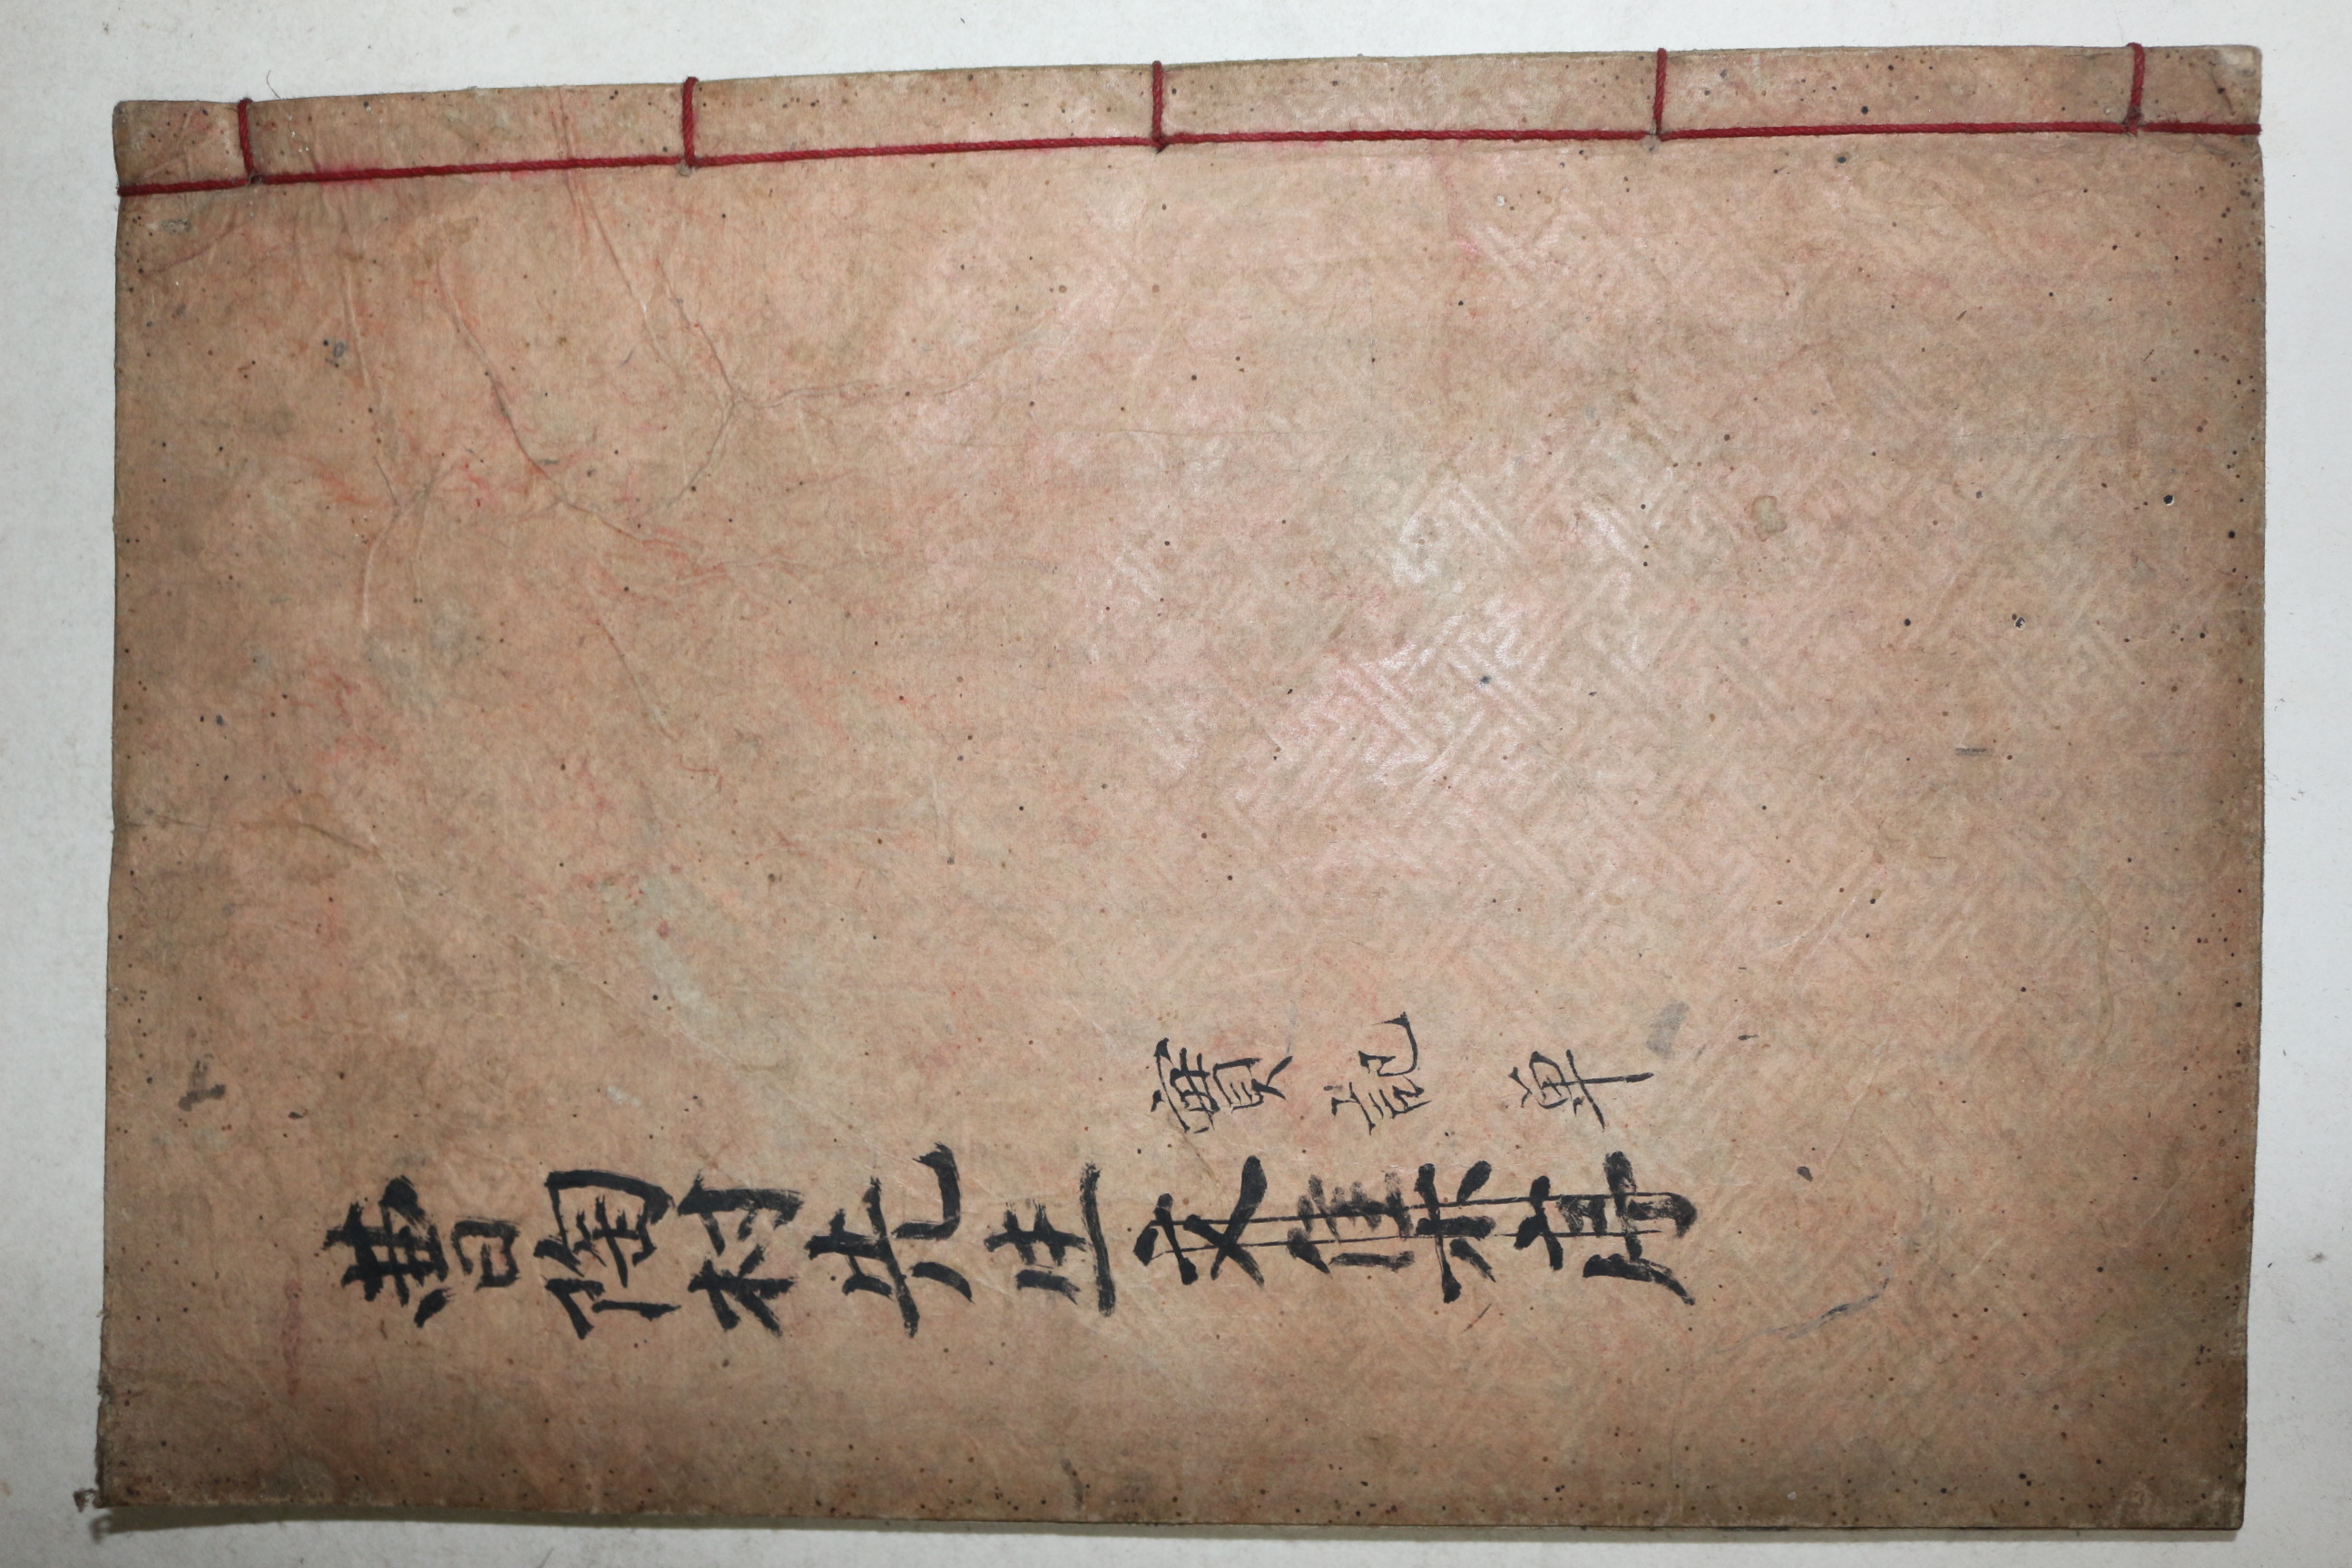 曹陶村先生文集序
實記单